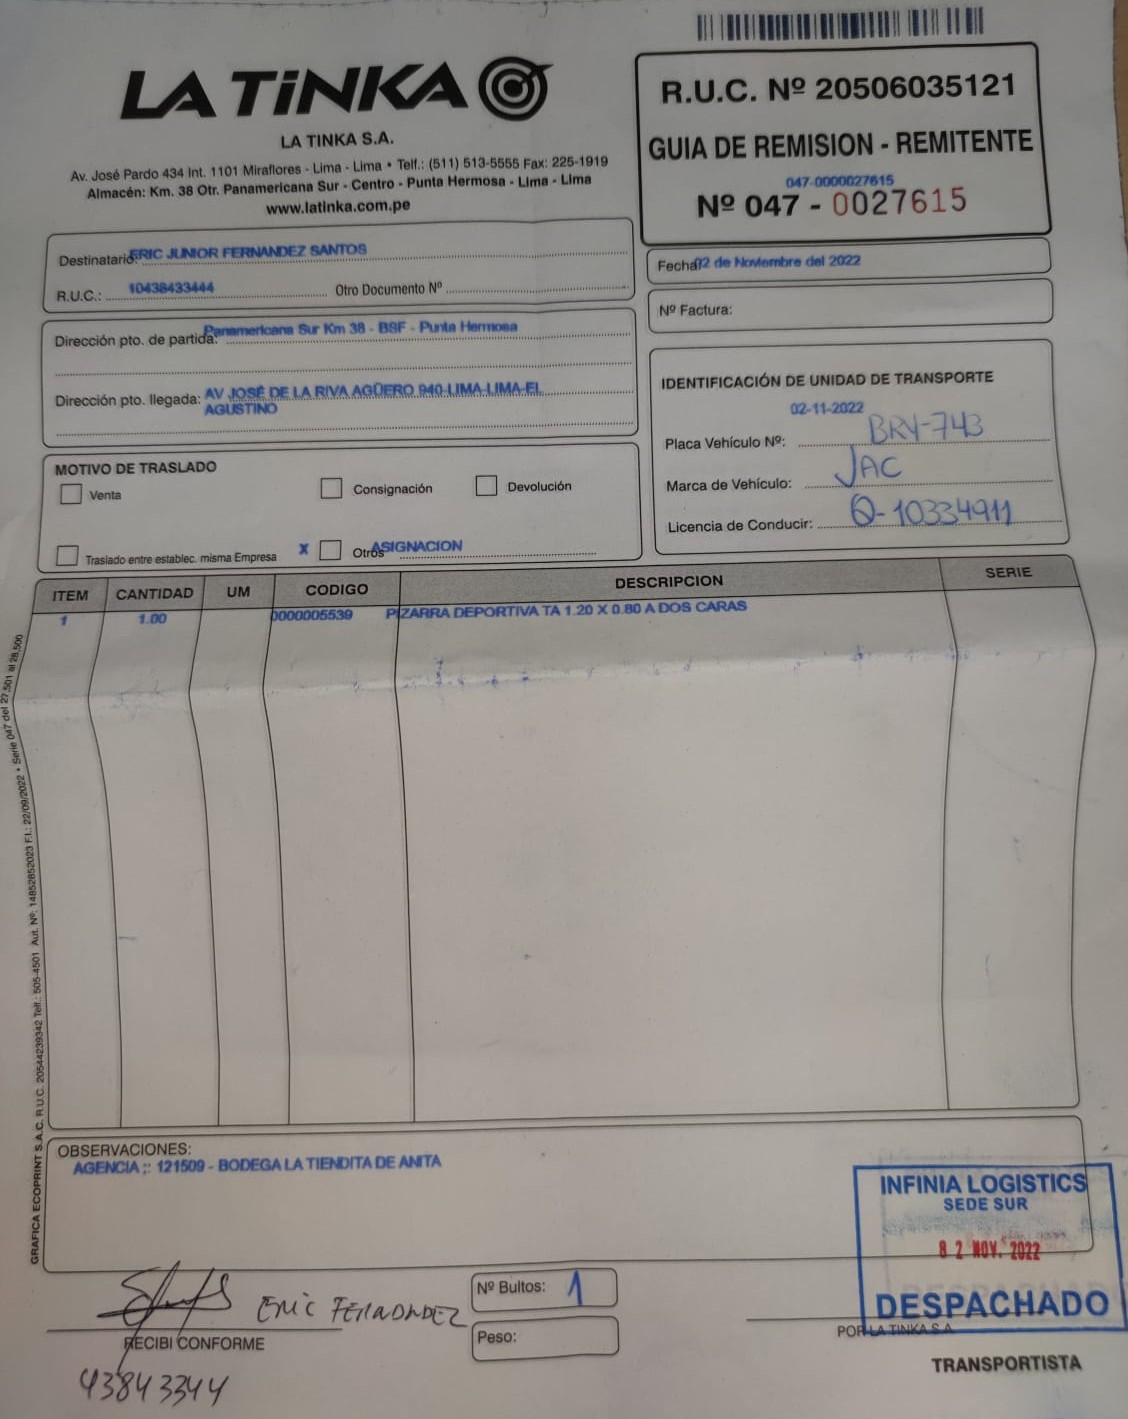 LA TiNKA
LA TINKA S.A.
Av. José Pardo 434 Int. 1101 Miraflores - Lima - Lima • Telf.: (511) 513-5555 Fax: 225-1919
Almacén: Km. 38 Otr. Panamericana Sur - Centro - Punta Hermosa - Lima - Lima
www.latinka.com.pe
R.U.C. Nº 20506035121
GUIA DE REMISION - REMITENTE
047-0000027615
Nº 047 - 0027615
Destinatario: ERIC JUNIOR FERNANDEZ SANTOS
R.U.C.: 10438433444 Otro Documento Nº
Fecha: 02 de Noviembre del 2022
Nº Factura:
Dirección pto. de partida: Panamericana Sur Km 38 - BSF - Punta Hermosa
Dirección pto. llegada: AV JOSÉ DE LA RIVA AGÜERO 940-LIMA-LIMA-EL
AGUSTINO
IDENTIFICACIÓN DE UNIDAD DE TRANSPORTE
02-11-2022
Placa Vehículo Nº: BRY-743
Marca de Vehículo: JAC
Licencia de Conducir: Q-10334911
MOTIVO DE TRASLADO
Venta Consignación Devolución
Traslado entre establec. misma Empresa X Otros ASIGNACION
ITEM CANTIDAD UM CODIGO DESCRIPCION SERIE
1 1.00 0000005539 PIZARRA DEPORTIVA TA 1.20 X 0.80 A DOS CARAS
GRAFICA ECOPRINT S.A.C. R.U.C. 20544239342 Telf.: 505-4501 Aut. Nº: 14852852023 F.I.: 22/09/2022 • Serie 047 del 27,501 al 28,500
OBSERVACIONES:
AGENCIA ;: 121509 - BODEGA LA TIENDITA DE ANITA
INFINIA LOGISTICS
SEDE SUR
02 NOV. 2022
DESPACHADO
ERIC FERNANDEZ
RECIBI CONFORME
43843344
Nº Bultos: 1
Peso:
POR LA TINKA S.A.
TRANSPORTISTA